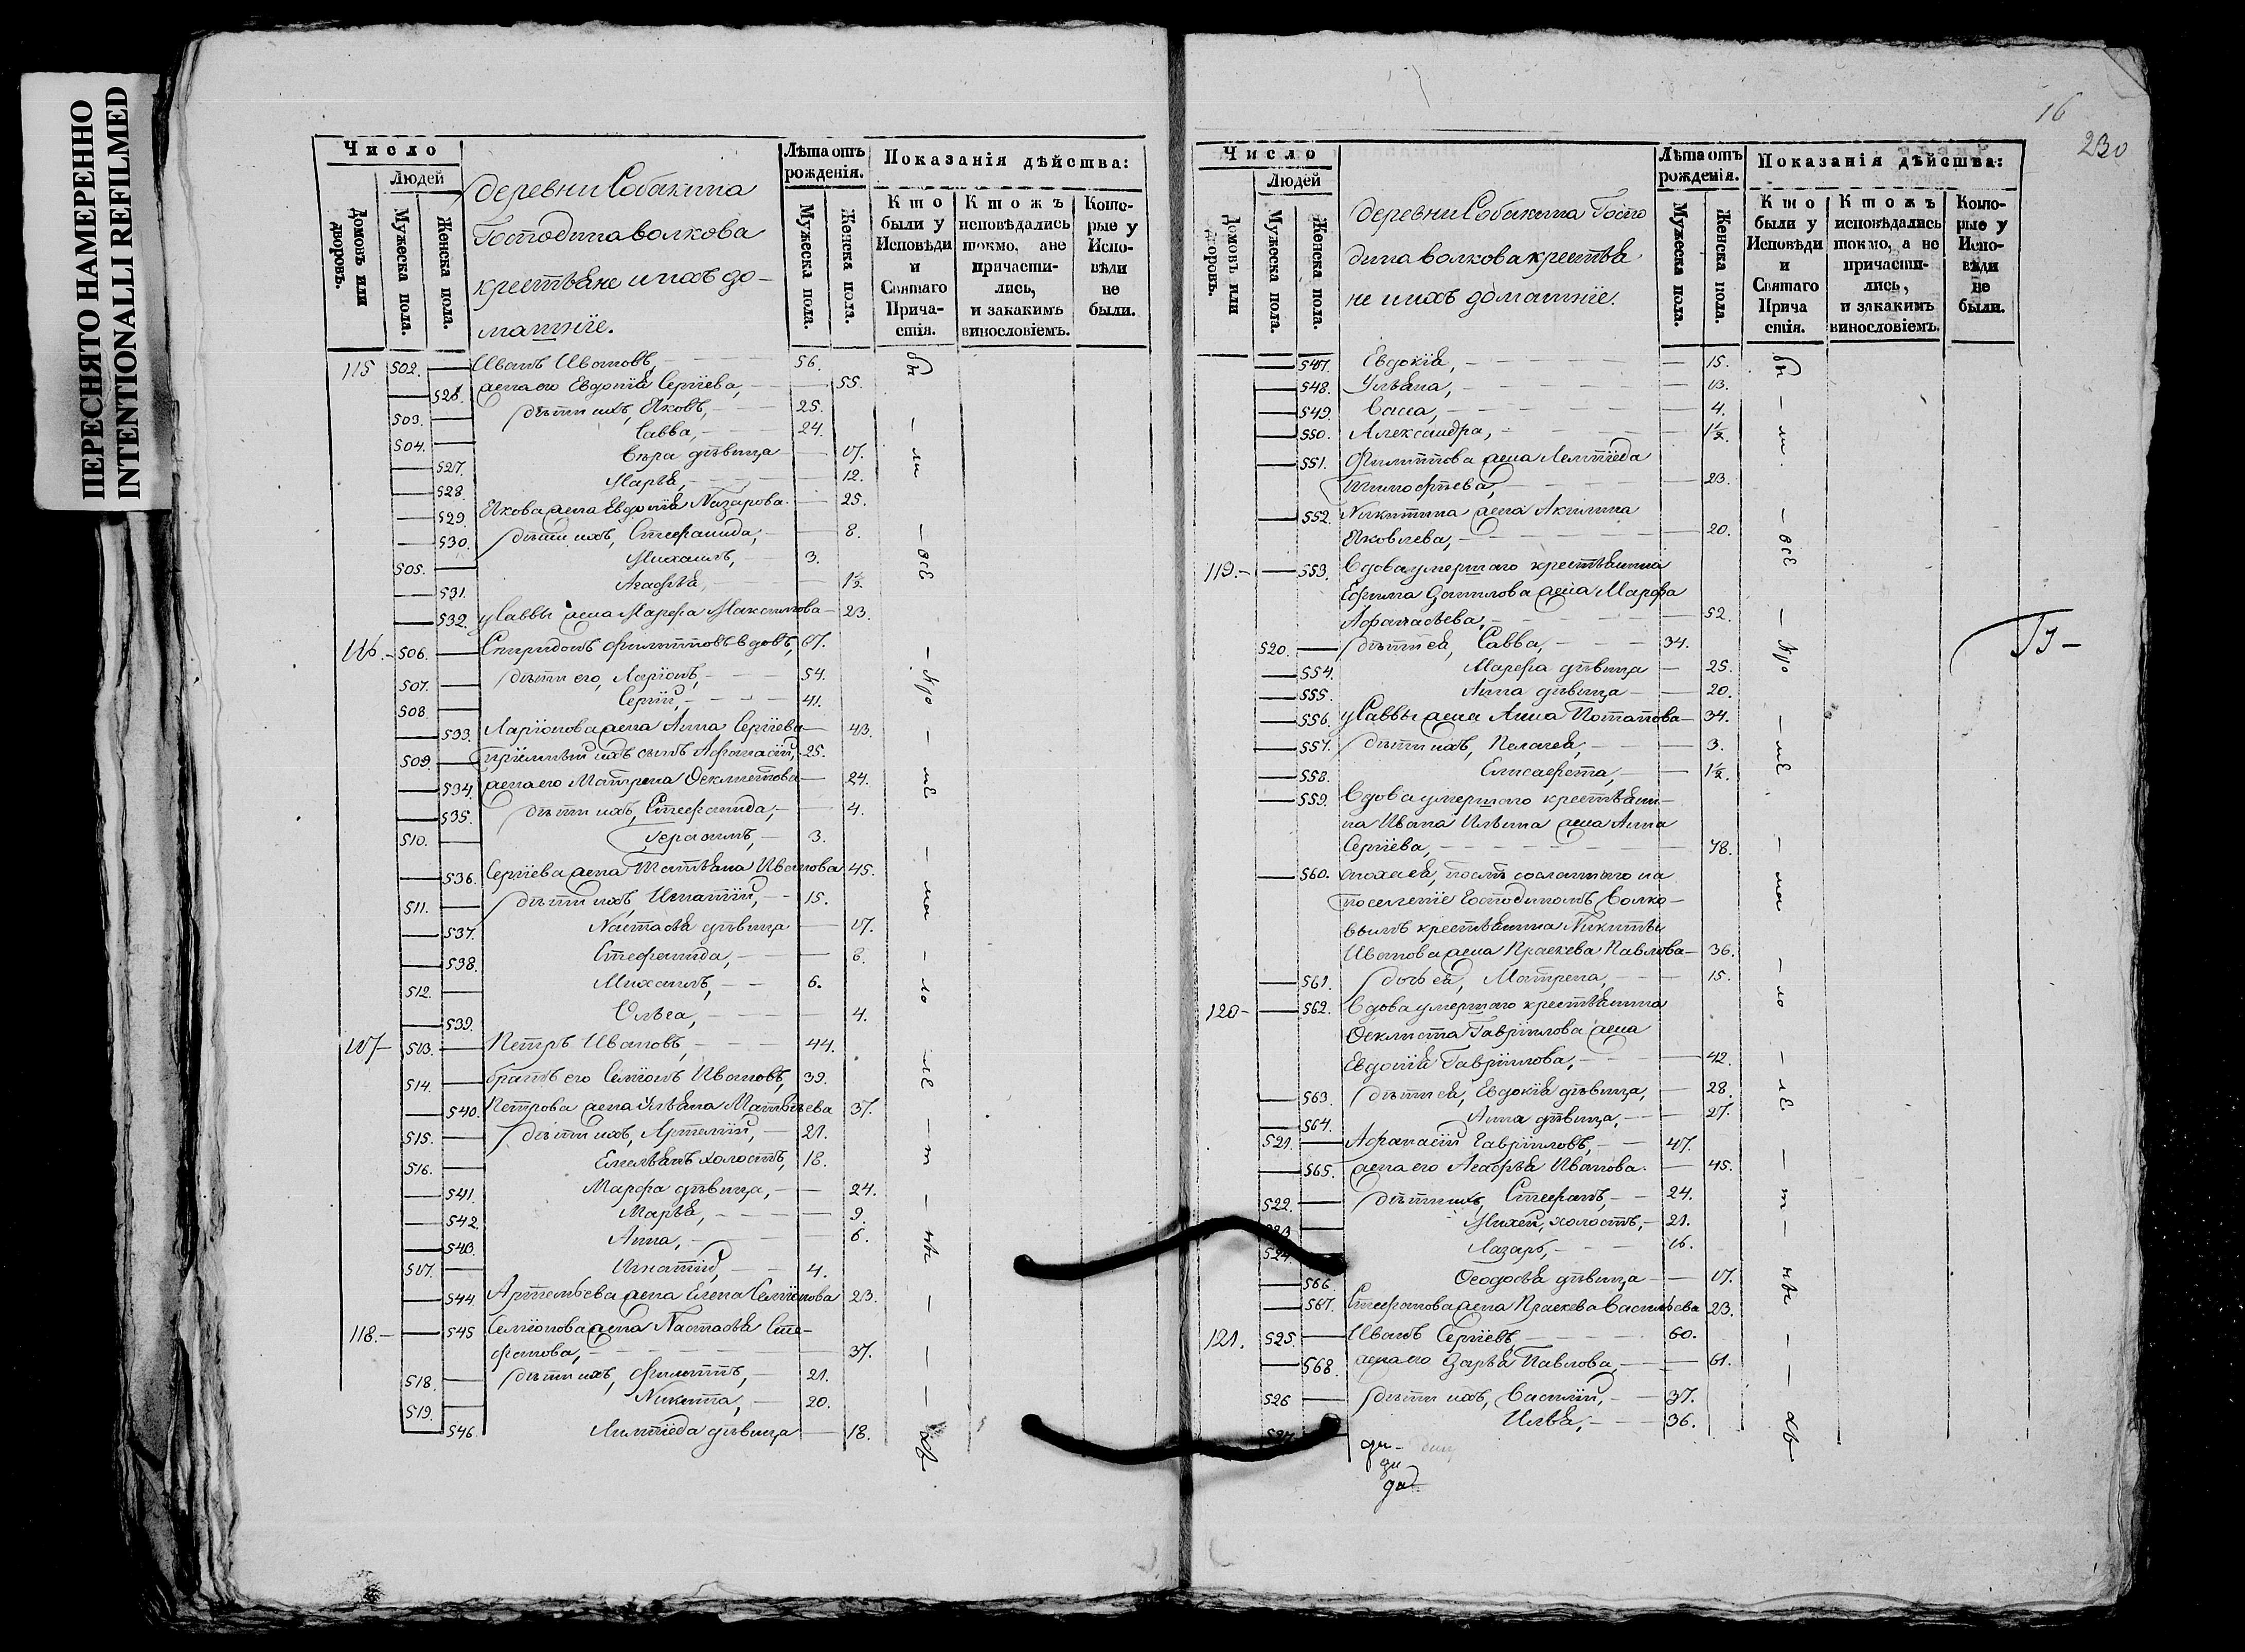 ПЕРЕСНЯТО НАМЕРЕННО
INTENTIONALLI REFILMED
Число
Людей
Домовъ или дворовъ.
Мужеска пола.
Женска пола.
деревни Собакина
Господина волкова
крестьяне и ихъ до-
машнїе.
Лѣта отъ рожденїя.
Мужеска пола.
Женска пола.
Показанїя дѣйства:
Кто были у Исповѣди и Святаго Прича- стїя.
Ктожъ исповѣдались токмо, а не причасти- лись, и закакимъ винословїемъ.
Кото- рые у Испо- вѣди не были.
115 502. Иванъ Ивановъ, 56.
526. жена его Евдокїя Сергїева, 55.
503. дѣти ихъ, Яковъ, 25.
504. Савва, 24.
527. Вѣра дѣвица 17.
528. Марья, 12.
529. Якова жена Евдокїя Назарова 25.
530. дѣти ихъ, Стефанида, 8.
505. Михаилъ, 3.
531. Агафья, 1½
532. у Саввы жена Марфа Максимова 23.
116. 506. Спиридонъ Филипповъ вдовъ, 17.
507. дѣти его, Ларїонъ, 54.
508. Сергїй, 41.
533. Ларїонова жена Анна Сергїева 43.
509. прїемный ихъ сынъ Афанасїй, 25.
534. жена его Матрена Феклистова 24.
535. дѣти ихъ, Стефанида, 4.
510. Герасимъ, 3.
536. Сергїева жена Татьяна Иванова 45.
511. дѣти ихъ, Игнатїй, 15.
537. Настасья дѣвица 17.
538. Стефанида, 8.
512. Михаилъ, 6.
539. Ольга, 4.
117 513. Петръ Ивановъ, 44.
514. братъ его Семїонъ Ивановъ, 39.
540. Петрова жена Ульяна Матвѣева 37.
515. дѣти ихъ, Артемїй, 21.
516. Емельянъ холостъ, 18.
541. Марфа дѣвица, 24.
542. Марья, 9.
543. Анна, 6.
517. Игнатїй, 4.
544. Артемьева жена Елена Семїонова 23.
118. 545 Семїонова жена Настасья Сте-
фанова, 37.
518. дѣти ихъ, Филиппъ, 21.
519. Никита, 20.
546. Лимпїеда дѣвица 18.
16
230
Число
Людей
Домовъ или дворовъ.
Мужеска пола.
Женска пола.
деревни Собакина Госпо
дина волкова крестья
не и ихъ домашнїе.
Лѣта отъ рожденїя.
Мужеска пола.
Женска пола.
Показанїя дѣйства:
Кто были у Исповѣди и Святаго Прича стїя.
Ктожъ исповѣдались токмо, а не причасти- лись, и закакимъ винословїемъ.
Кото- рые у Испо- вѣди не были.
547. Евдокїя, 15.
548. Ульяна, 13.
549. Васса, 4.
550. Александра, 1½.
551. Филиппова жена Лемпїеда
Тимофѣева, 23.
552. Никитина жена Акилина
Яковлева, 20.
119. 553. Вдова умершаго крестьянина
Ефима Данилова жена Марфа
Афанасьева, 52.
520. дѣти ея, Савва, 34.
554. Марфа дѣвица 25.
555. Анна дѣвица 20.
556. у Саввы жена Анна Потапова 34.
557. дѣти ихъ, Пелагея, 3.
558. Елисавета, 1½.
559. Вдова умершаго крестьяни-
на Ивана Ильина жена Анна
Сергїева, 78.
560. сноха ея, послѣ сосланнаго на
поселенїе Господиномъ Волко-
вымъ крестьянина Никиты
Иванова жена Праскева Павлова 36.
561. дочь ея, Матрена, 15.
120 562. Вдова умершаго крестьянина
Феклиста Гаврїилова жена
Евдокїя Гаврїилова, 42.
563. дѣти ея, Евдокїя дѣвица, 28.
564. Анна дѣвица, 27.
521. Афанасїй Гаврїиловъ, 47.
565. жена его Агафья Иванова 45.
522. дѣти ихъ, Стефанъ, 24.
523 Михей, холостъ, 21.
524 Лазарь, 16.
566 Феодосья дѣвица 17.
567. Стефанова жена Праскева Васильева 23.
121. 525. Иванъ Сергїевъ 60.
568. жена его Дарья Павлова, 61.
526 дѣти ихъ, Василїй, 37.
527 Илья, 36.